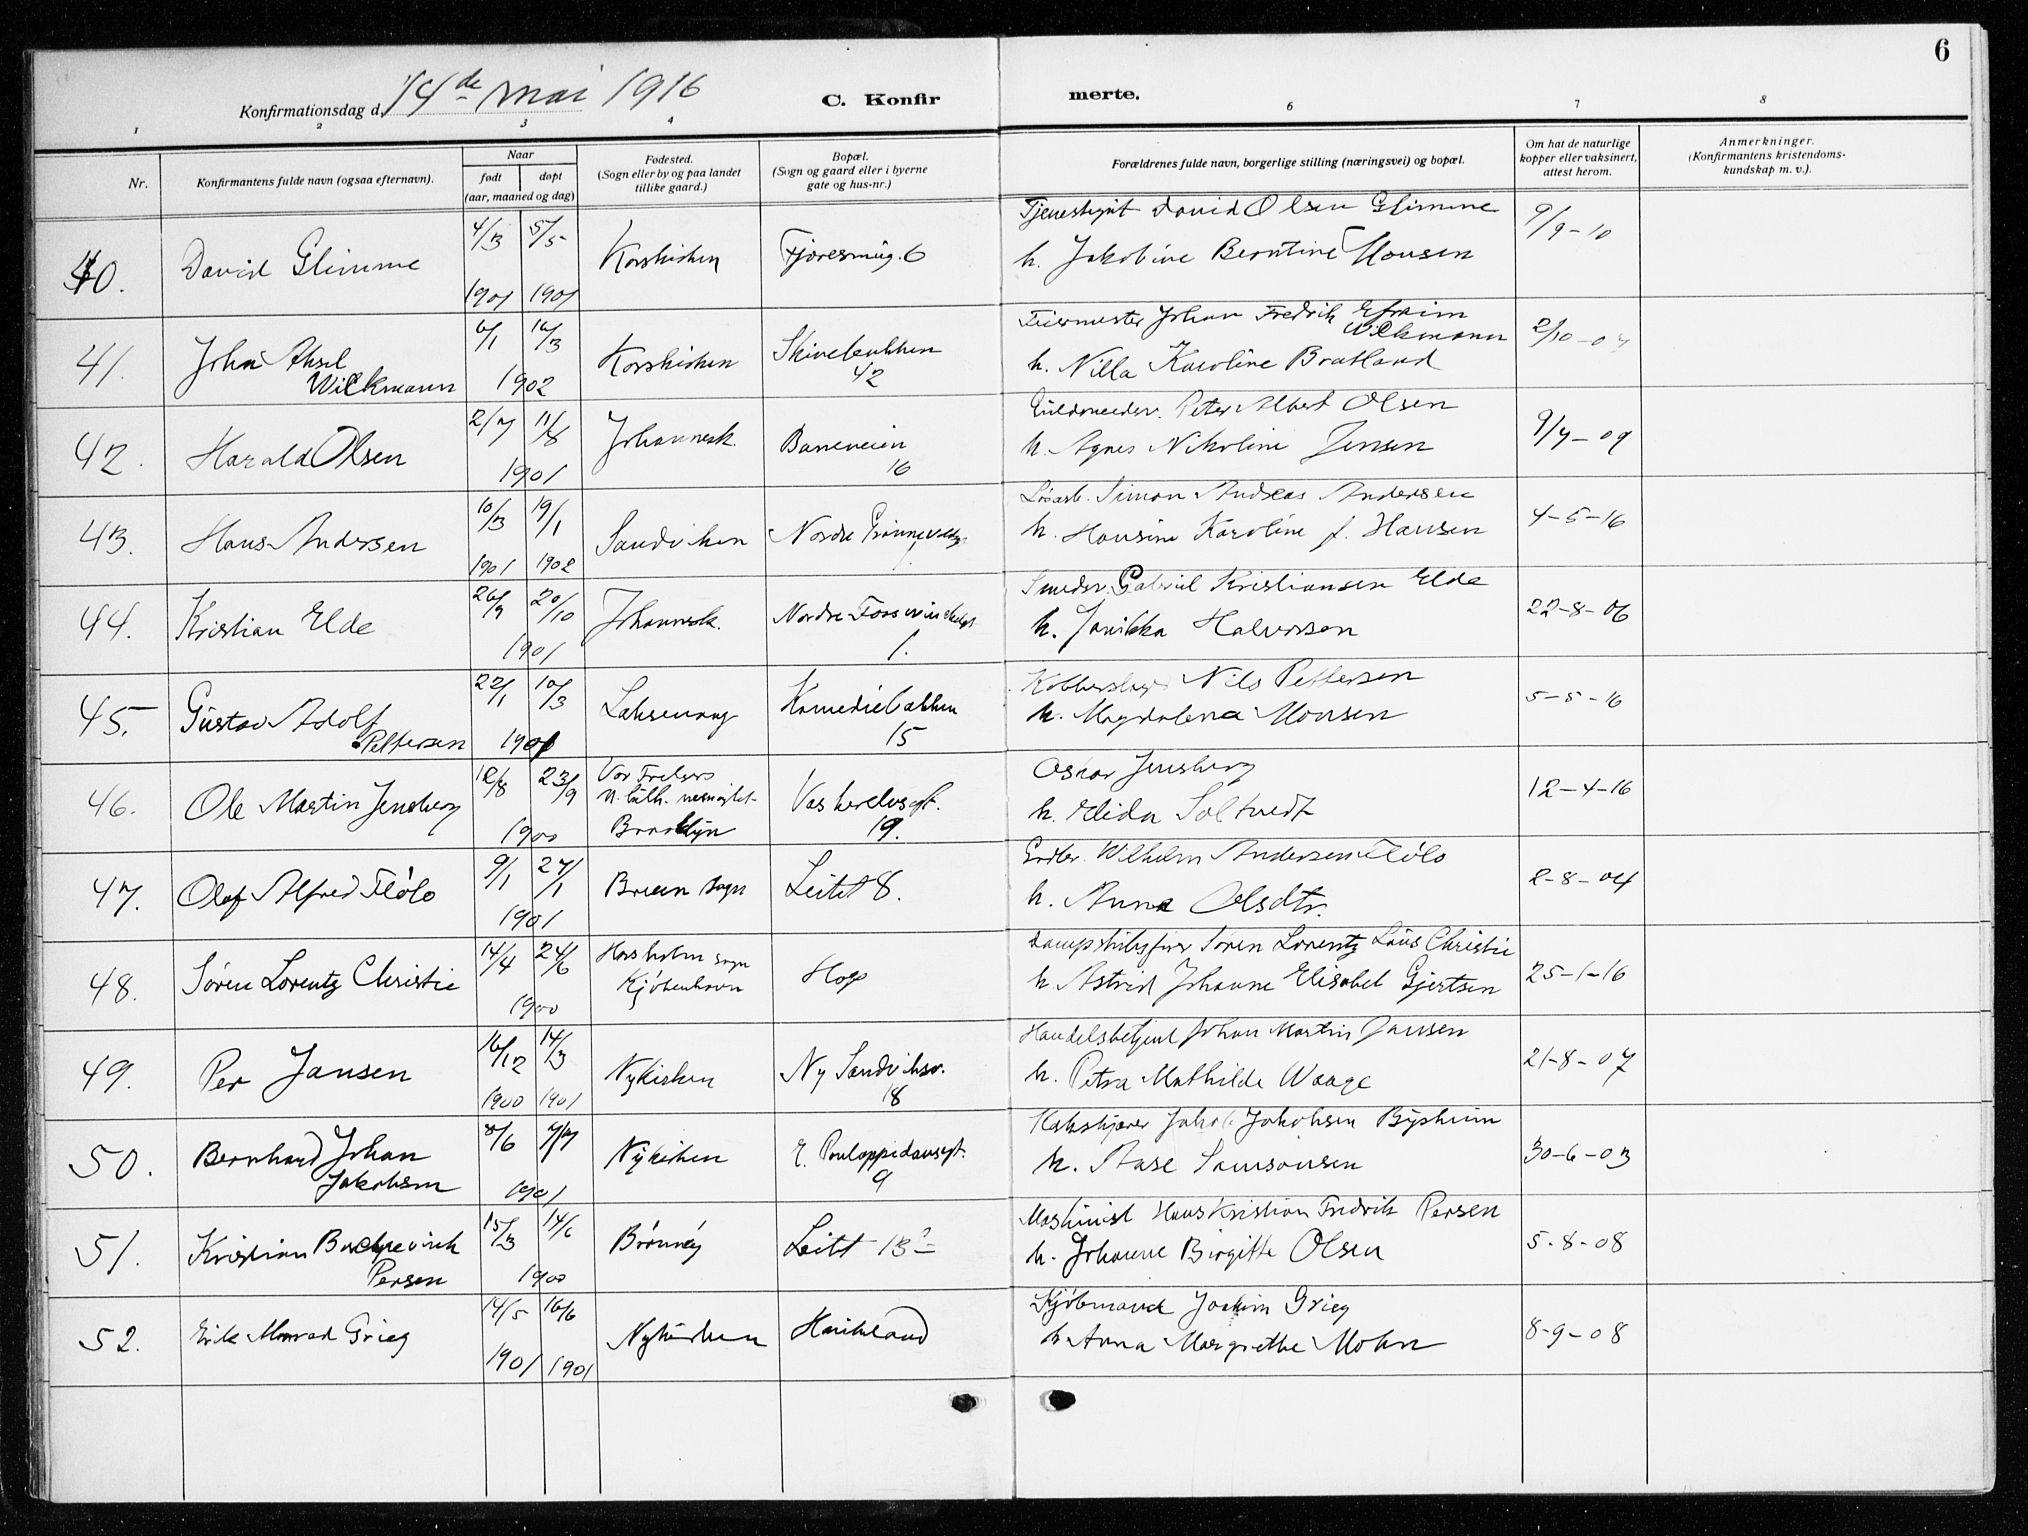 6
Konfirmationsdag d. 14de mai 1916
C. Konfirmerte.
1 2 3 4 6 7 8
Nr.
Konfirmantens fulde navn (ogsaa efternavn).
Naar
født døpt
(aar, maaned og dag)
Fødested.
(Sogn eller by og paa landet
tillike gaard.)
Bopæl.
(Sogn og gaard eller i byerne
gate og hus-nr.)
Forældrenes fulde navn, borgerlige stilling (næringsvei) og bopæl.
Om hat de naturlige
kopper eller vaksinert,
attest herom.
Anmerkninger.
(Konfirmantens kristendoms-
kundskap m. v.).
40. David Glimme 4/3 1901 5/5 1901 Korskirken 6 David Olsen Glimme 9/9-10
h. Jakobine Berntine Monsen
41. John Aksel Wilckmann 6/1 16/3 1902 Korskirken Skivebakken 42 Feiermester Johan Fredrik Efraim Wilckmann 2/10-07
h. Nilla Karoline Bratland
42. Harald Olsen 2/7 11/8 1901 Johannesk. Baneveien 16 Peter Albert Olsen 9/4-09
h. Agnes Nikoline Jensen
43. Hans Andersen 10/3 1901 19/1 1902 Sandviken Nordre Løsarb. Simon Andreas Andersen 4-5-16
h. Hansine Karoline f. Hansen
44. Kristian Elde 26/9 20/10 1901 Johannesk. Nordre 1. Smedsv. Gabriel Kristiansen Elde 22-8-06
h. Janikka Halvorsen
45. Gustav Adolf Pettersen 22/1 10/3 1901 Laksevaag Komediebakken 15 Nils Pettersen 5-5-16
h. Magdalena Monsen
46. Ole Martin Jensberg 12/8 23/9 1900 Vor Frelsers n. luth. menighet Brooklyn Vaskerelvsgt. 19. Oskar Jensberg 12-4-16
h. Elida Soltvedt
47. Olaf Alfred Flølo 9/1 27/1 1901 Breim sogn Leitet 8. Wilhelm Andersen Flølo 2-8-04
h. Anna Olsdtr.
48. Søren Lorentz Christie 14/4 24/6 1900 sogn Kjøbenhavn Hop Dampskibsfører Søren Lorentz Lous Christie 25-1-16
h. Astrid Johanne Elisabet Gjertsen
49. Per Jansen 16/12 1900 14/3 1901 Nykirken Ny Sandviksv. 18 Handelsbetjent Johan Martin Jansen 21-8-07
h. Petra Mathilde Waage
50. Bernhard Johan Jakobsen 8/6 7/7 1901 Nykirken 9 Jakob Jakobsen Bysheim 30-6-03
h. Aase Samsonsen
51. Kristian Persen 15/3 14/6 1900 Brønnøy Leitet 13 Maskinist Hans Kristian Fredrik Persen 5-8-08
h. Johanne Birgitte Olsen
52. Erik Monrad Grieg 14/5 1901 16/6 1901 Nykirken Haukeland Kjøbmand Joakim Grieg 8-9-08
h. Anna Margrethe Mohn